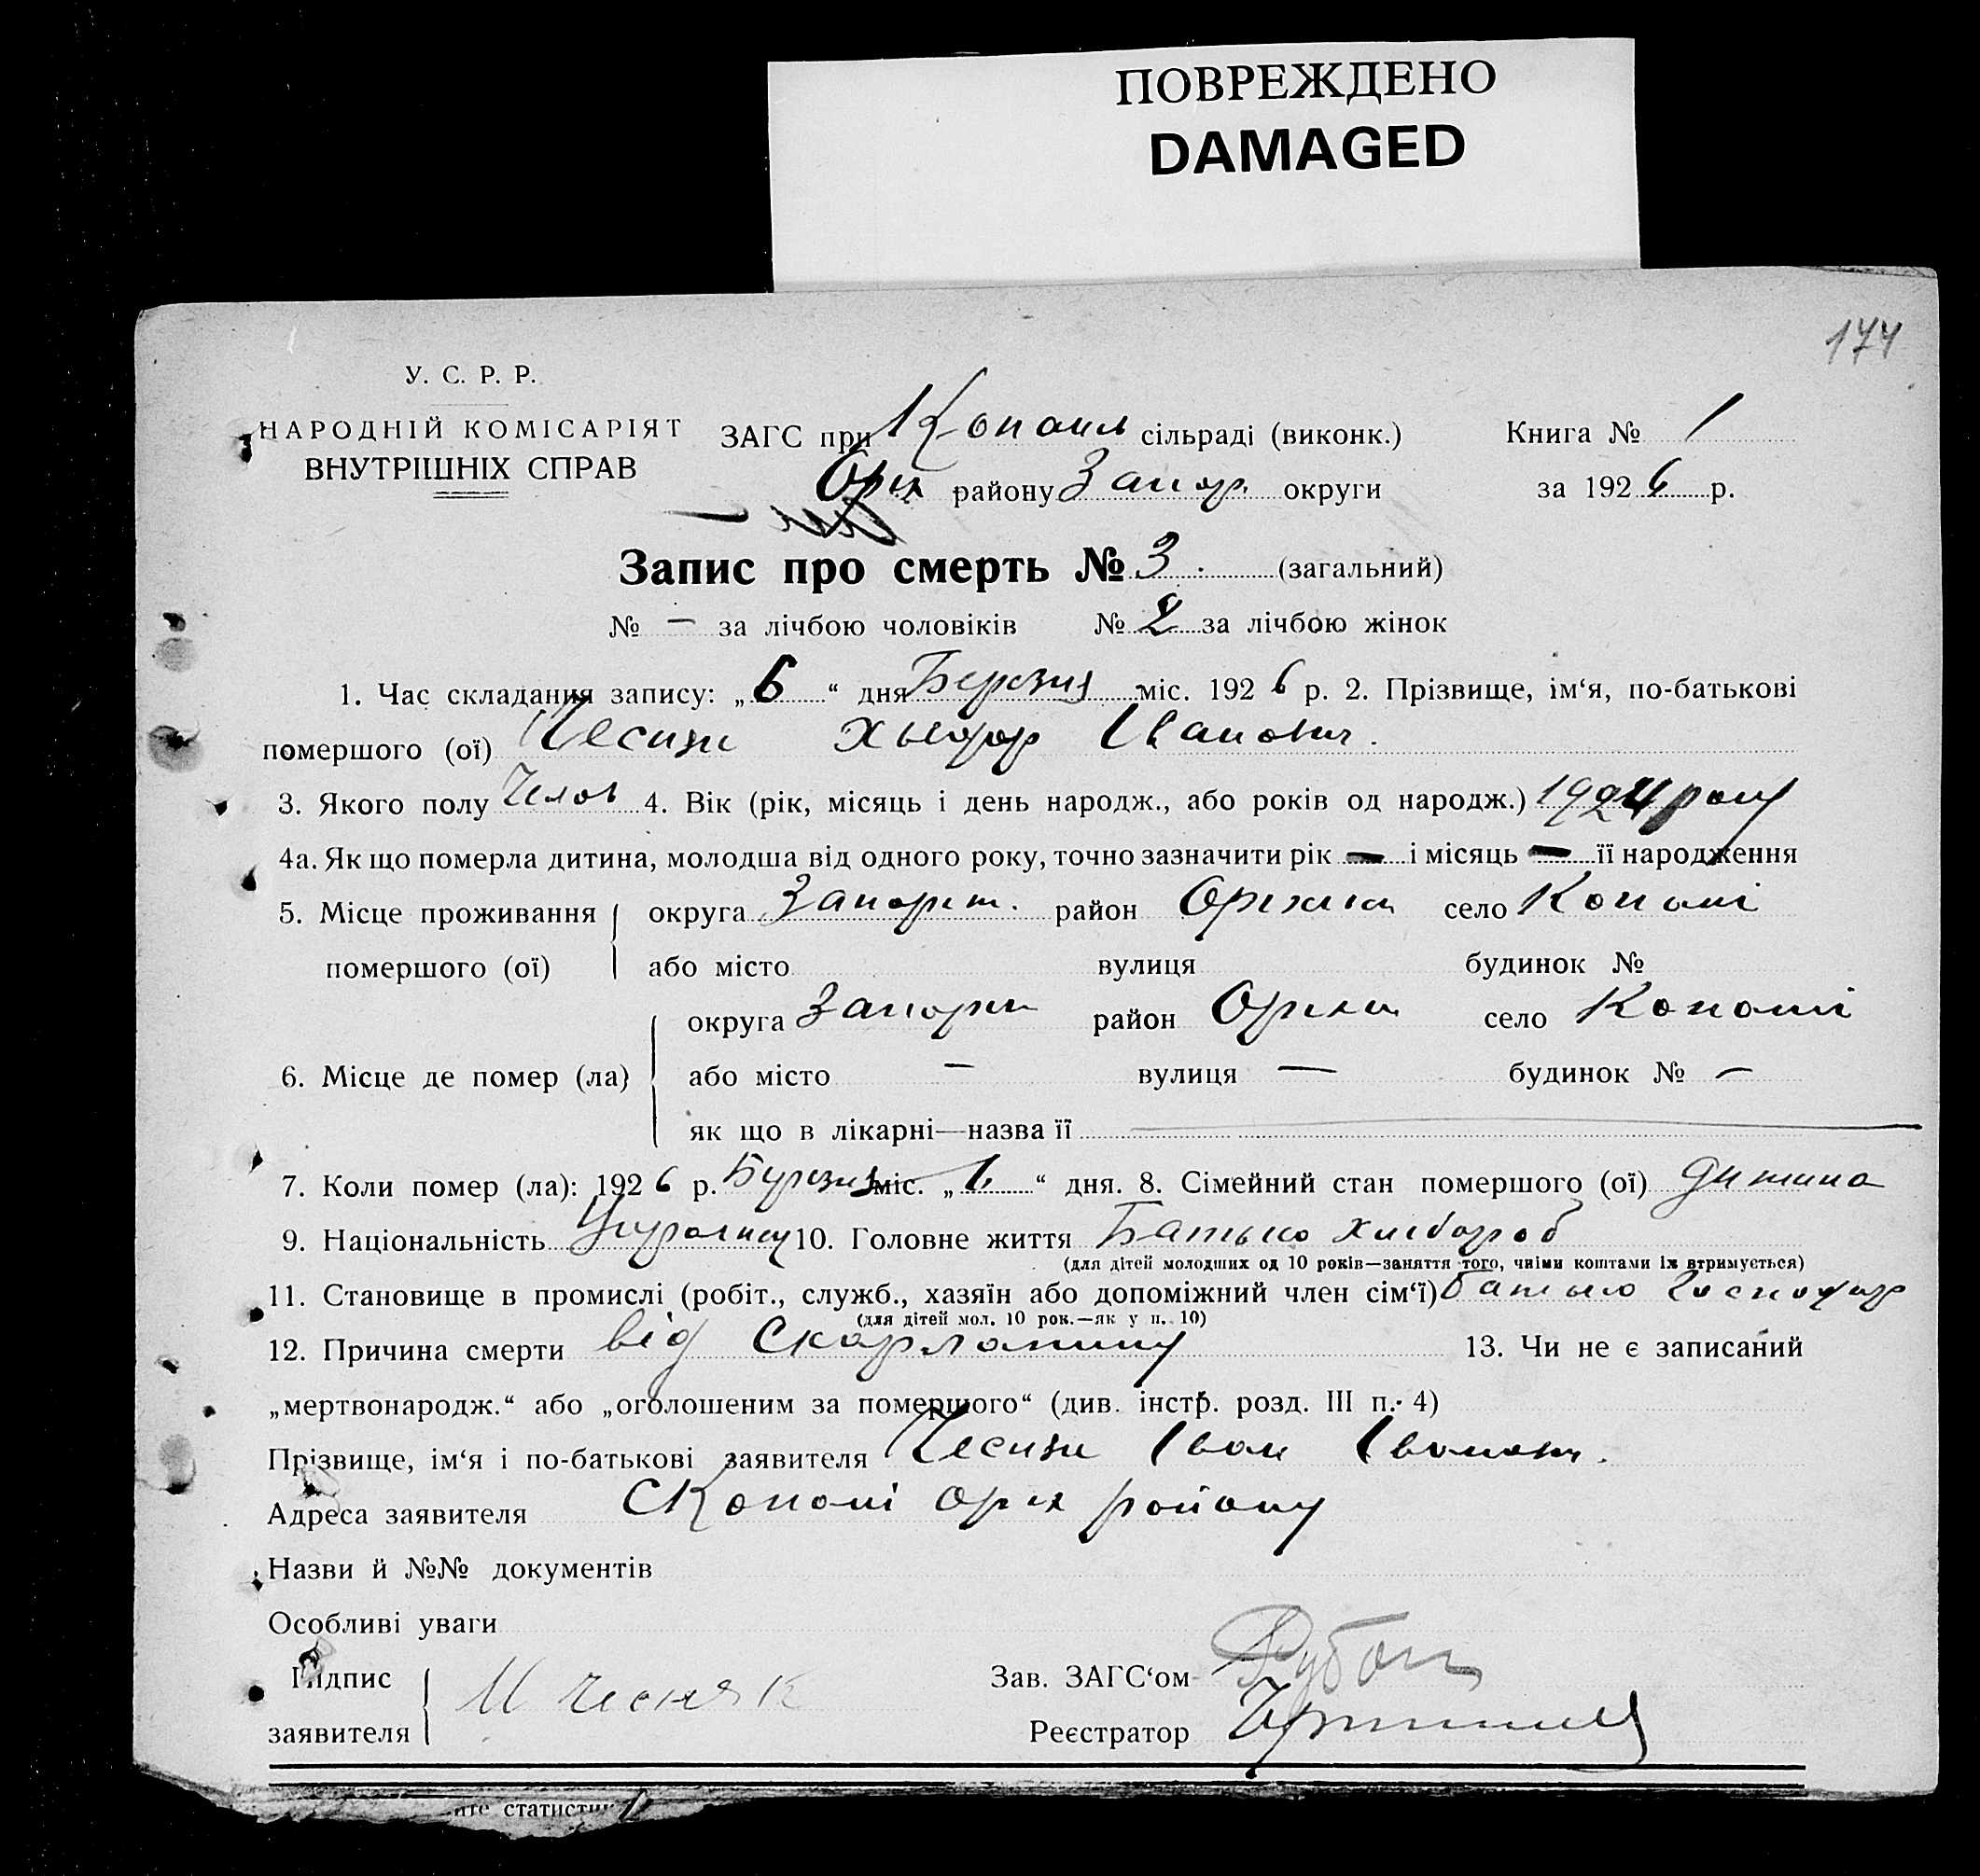 ПОВРЕЖДЕНО
DAMAGED
174
У. С. Р. Р.
НАРОДНІЙ КОМІСАРІЯТ
ВНУТРІШНІХ СПРАВ
ЗАГС при Копань сільраді (виконк.)
Оріх району Запор. округи
Книга № 1
за 1926 р.
Запис про смерть № 3. (загальний)
№ — за лічбою чоловіків № 2 за лічбою жінок
1. Час складання запису: „6“ дня Березня міс. 1926 р. 2. Прізвище, ім‘я, по-батькові
помершого (ої) Іванович.
3. Якого полу Чолов 4. Вік (рік, місяць і день народж., або років од народж.) 1924 року
4а. Як що померла дитина, молодша від одного року, точно зазначити рік — і місяць — її народження
5. Місце проживання округа район село Копані
помершого (ої) або місто вулиця будинок №
округа район село Копані
6. Місце де помер (ла) або місто — вулиця — будинок № —
як що в лікарні—назва її
7. Коли помер (ла): 1926 р. Березня міс. „ “ дня. 8. Сімейний стан помершого (ої) дитина
9. Національність 10. Головне життя Батько хлібороб
(для дітей молодших од 10 років—заняття того, чиїми коштами їх втримується)
11. Становище в промислі (робіт., служб., хазяїн або допоміжний член сім‘ї) Батько Господар
(для дітей мол. 10 рок.—як у п. 10)
12. Причина смерти від Скарлатини 13. Чи не є записаний
„мертвонародж.“ або „оголошеним за померщого“ (див. інстр. розд. III п. 4)
Прізвище, ім‘я і по-батькові заявителя Іван Іванович.
Адреса заявителя С Копані Оріх району
Назви й №№ документів
Особливі уваги
Підпис
заявителя И Чесняк
Зав. ЗАГС‘ом
Реєстратор